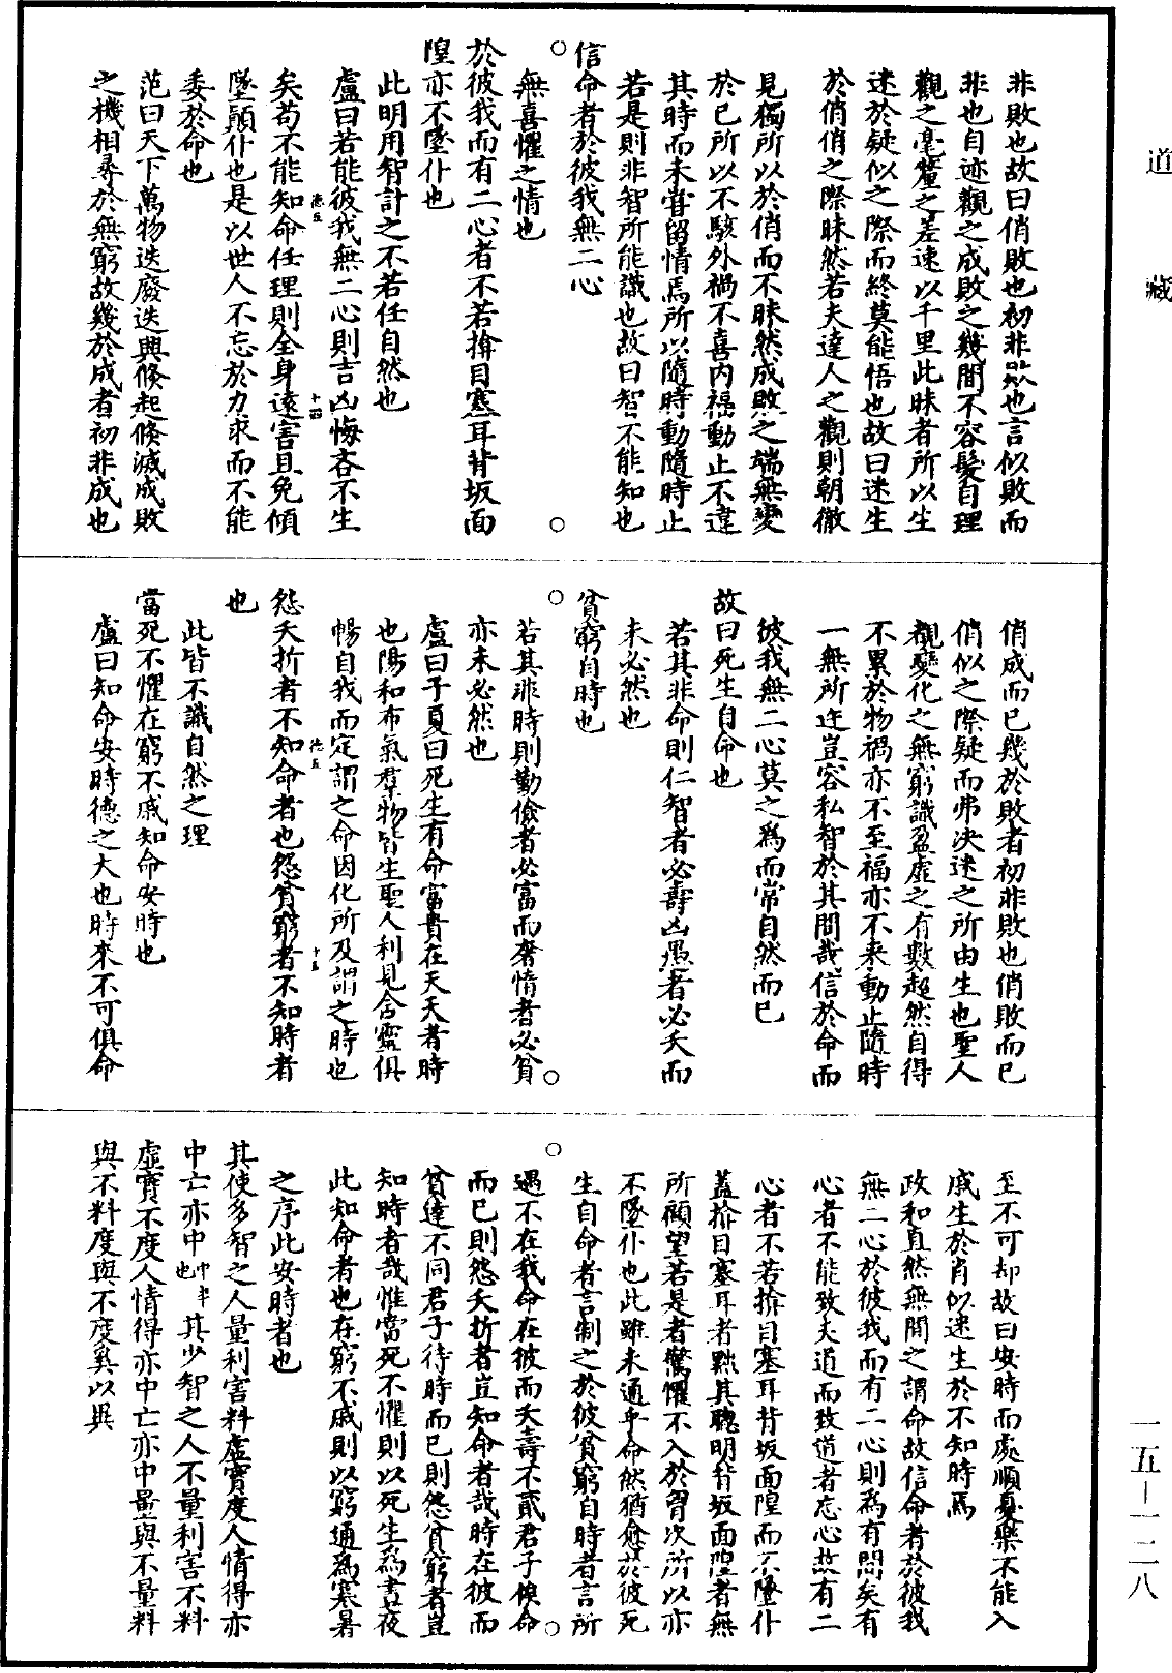 道藏
非敗也故曰俏敗也初非敗也言似敗而
非也自迹觀之成敗之幾間不容髮自理
觀之毫釐之差速以千里此昧者所以生
迷於疑似之際而終莫能悟也故曰迷生
於俏俏之際昧然若夫達人之觀則朝徹
見獨所以於俏而不昧然成敗之端無變
於已所以不駭外禍不喜内福動止不違
其時而未嘗留情焉所以隨時動隨時止
若是則非智所能識也故曰智不能知也
信命者於彼我無二心
無喜懼之情也
於彼我而有二心者不若揜目塞耳背坂面
隍亦不墜仆也
此明用智計之不若任自然也
盧曰若能彼我無二心則吉凶悔吝不生
德五
十四
矣苟不能知命任理則全身遠害且免傾
墜顛仆也是以世人不忘於力求而不能
委於命也
范曰天下萬物迭廢迭興倏起倏滅成敗
之機相尋於無窮故幾於成者初非成也
俏成而已幾於敗者初非敗也俏敗而已
俏似之際疑而弗決迷之所由生也聖人
觀變化之無窮識盈虛之有數超然自得
不累於物禍亦不至福亦不来動止隨時
一無所迕豈容私智於其間哉信於命而
彼我無二心莫之為而常自然而已
故曰死生自命也
若其非命則仁智者必壽凶愚者必夭而
未必然也
貧窮自時也
若其非時則勤儉者必富而奢惰者必貧
亦未必然也
盧曰子夏曰死生有命富貴在天天者時
也陽和布氣羣物皆生聖人利見含靈俱
暢自我而定謂之命因化所及謂之時也
德五
十五
怨夭折者不知命者也怨貧窮者不知時者
也
此皆不識自然之理
當死不懼在窮不戚知命安時也
盧曰知命安時德之大也時來不可俱命
至不可却故曰安時而處順憂樂不能入
戚生於肖似迷生於不知時焉
政和直然無間之謂命故信命者於彼我
無二心於彼我而有二心則為有間矣有
心者不能致夫道而致道者忘心故有二
心者不若揜目塞耳背坂面隍而不墜仆
蓋揜目塞耳者黜其聰明背坂面隍者無
所顧望若是者驚懼不入於胷次所以亦
不墜仆也此雖未通乎命然猶愈於彼死
生自命者言制之於彼貧窮自時者言所
遇不在我命在彼而夭壽不貳君子俟命
而已則怨夭折者豈知命者哉時在彼而
貧達不同君子待時而已則怨貧窮者豈
知時者哉惟當死不懼則以死生為晝夜
此知命者也在窮不戚則以窮通為寒暑
之序此安時者也
其使多智之人量利害料虛實度人情得亦
中亡亦中中半也其少智之人不量利害不料
虛實不度人情得亦中亡亦中量與不量料
與不料度與不度奚以異
一五—一二八